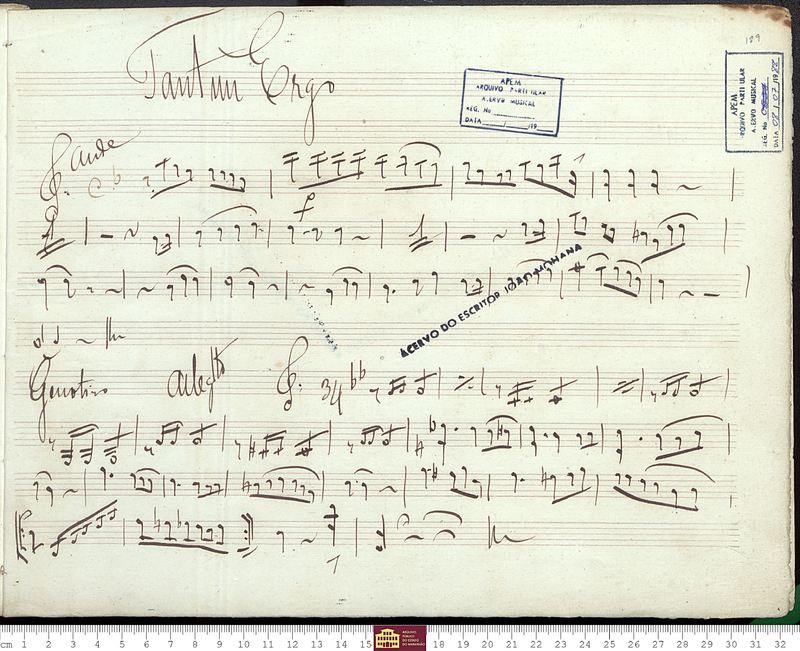 129
Tantum Ergo
APEM
ARQUIVO PARTICULAR
ACERVO MUSICAL
REG. No
DATA ___/___/19___
APEM
ARQUIVO PARTICULAR
ACERVO MUSICAL
REG. No
DATA 08/07/19
Andte
C
f
ACERVO DO ESCRITOR JOÃO MOHANA
Genotivo Allegtto 34
cm 1 2 3 4 5 6 7 8 9 10 11 12 13 14 15 18 19 20 21 22 23 24 25 26 27 28 29 30 31 32
ARQUIVO
PÚBLICO
DO ESTADO
DO MARANHÃO